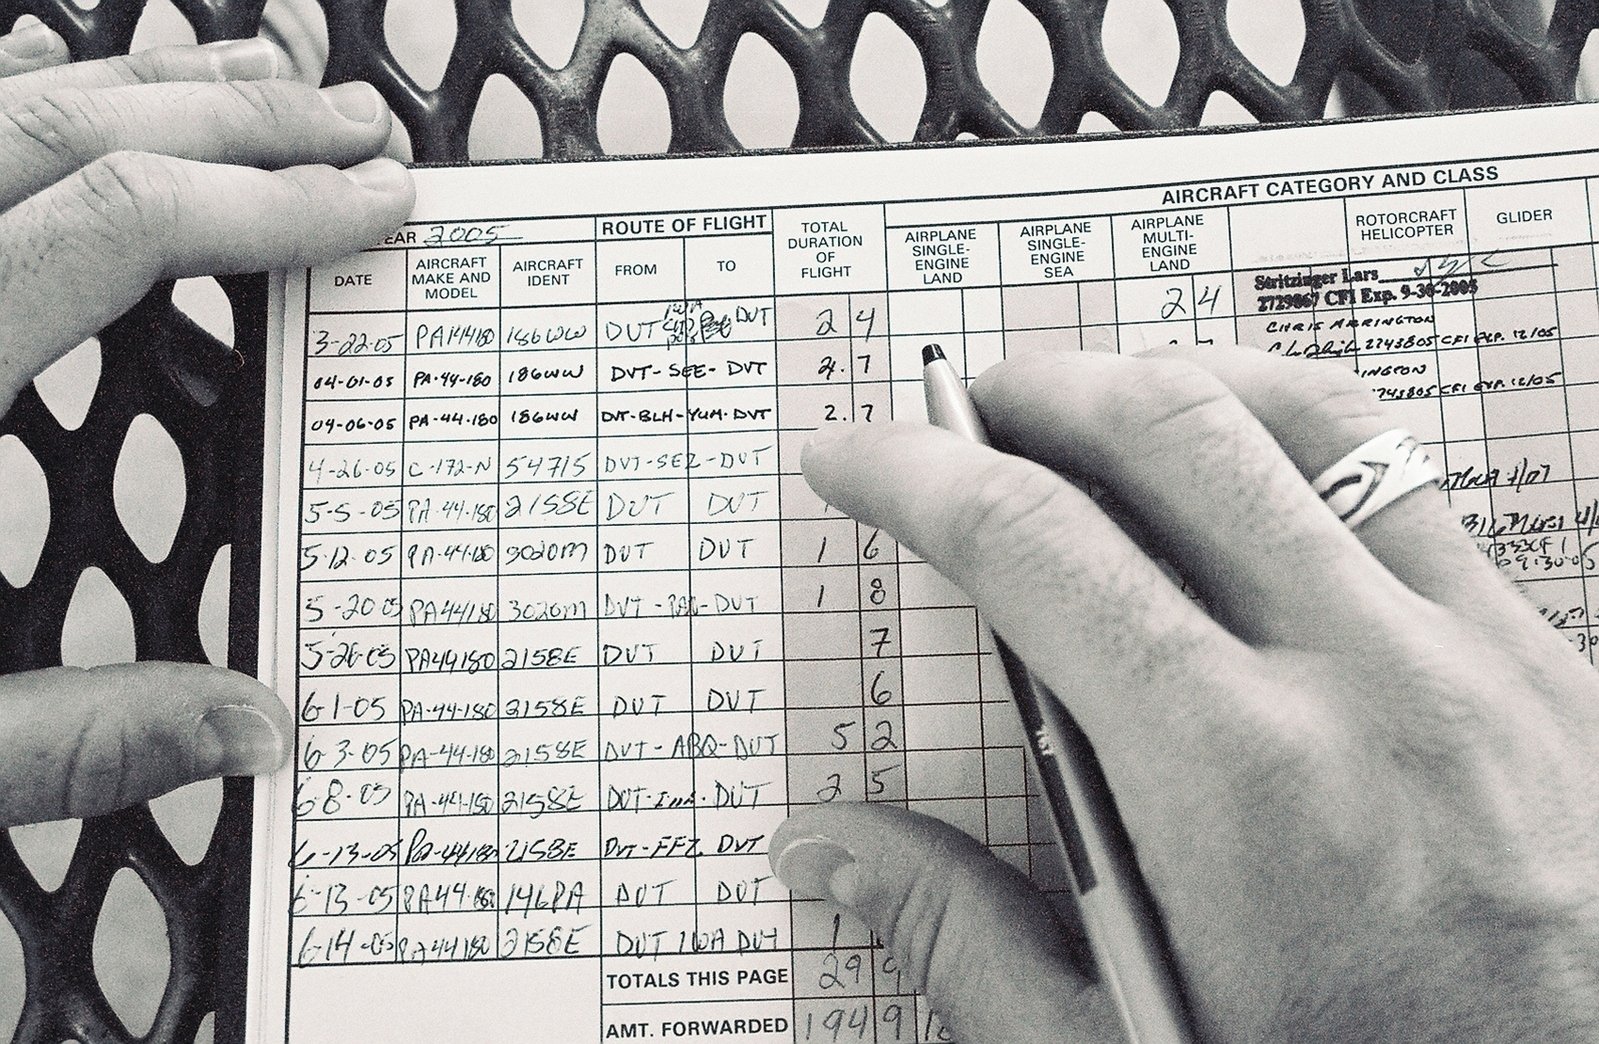 EAR 2005
ROUTE OF FLIGHT
TOTAL DURATION OF FLIGHT
AIRCRAFT CATEGORY AND CLASS
DATE
AIRCRAFT MAKE AND MODEL
AIRCRAFT IDENT
FROM
TO
AIRPLANE SINGLE-ENGINE LAND
AIRPLANE SINGLE-ENGINE SEA
AIRPLANE MULTI-ENGINE LAND
ROTORCRAFT HELICOPTER
GLIDER
3-22-05 PA44180 186WW DVT DVT 2 4 2 4
Stritzinger Lars
2729867 CFI Exp. 9-30-2005
CHRIS ARRINGTON
2743805 CFI EXP. 12/05
04-01-05 PA-44-180 186WW DVT-SEE-DVT 2.7
INGTON
743805 CFI EXP. 12/05
04-06-05 PA-44-180 186WW DVT-BLH-YUM-DVT 2.7
4-26-05 C-172-N 54715 DVT-SEZ-DVT
5-5-05 PA-44-180 2158E DVT DVT
5-12-05 PA-44-180 3020M DVT DVT 1 6
5-20-05 PA44180 3020M DVT DVT 1 8
5-26-05 PA44180 2158E DVT DVT 7
6-1-05 PA-44-180 2158E DVT DVT 6
6-3-05 PA-44-180 2158E DVT-ABQ-DVT 5 2
6-8-05 PA-44-180 2158E DVT DVT 2 5
6-13-05 PA-44180 2158E DVT-FFZ DVT
6-13-05 PA44-180 146PA DVT DVT
6-14-05 PA44180 2158E DVT IWA DVT 1
TOTALS THIS PAGE 29 9
AMT. FORWARDED 194 9